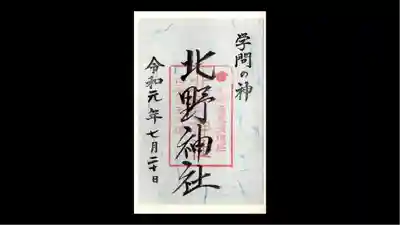 学問の神
北野神社
令和元年七月二十日